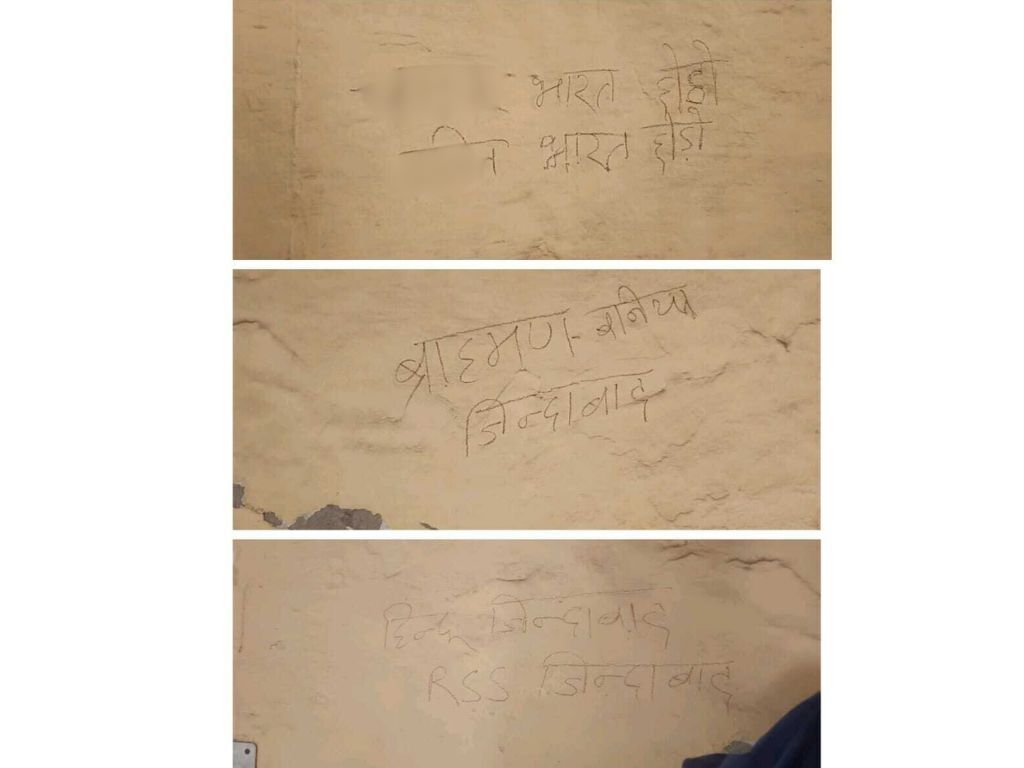 भारत छोड़ो
भारत छोड़ो
ब्राहमण-बनिया
जिन्दाबाद
हिन्दू जिन्दाबाद
RSS जिन्दाबाद